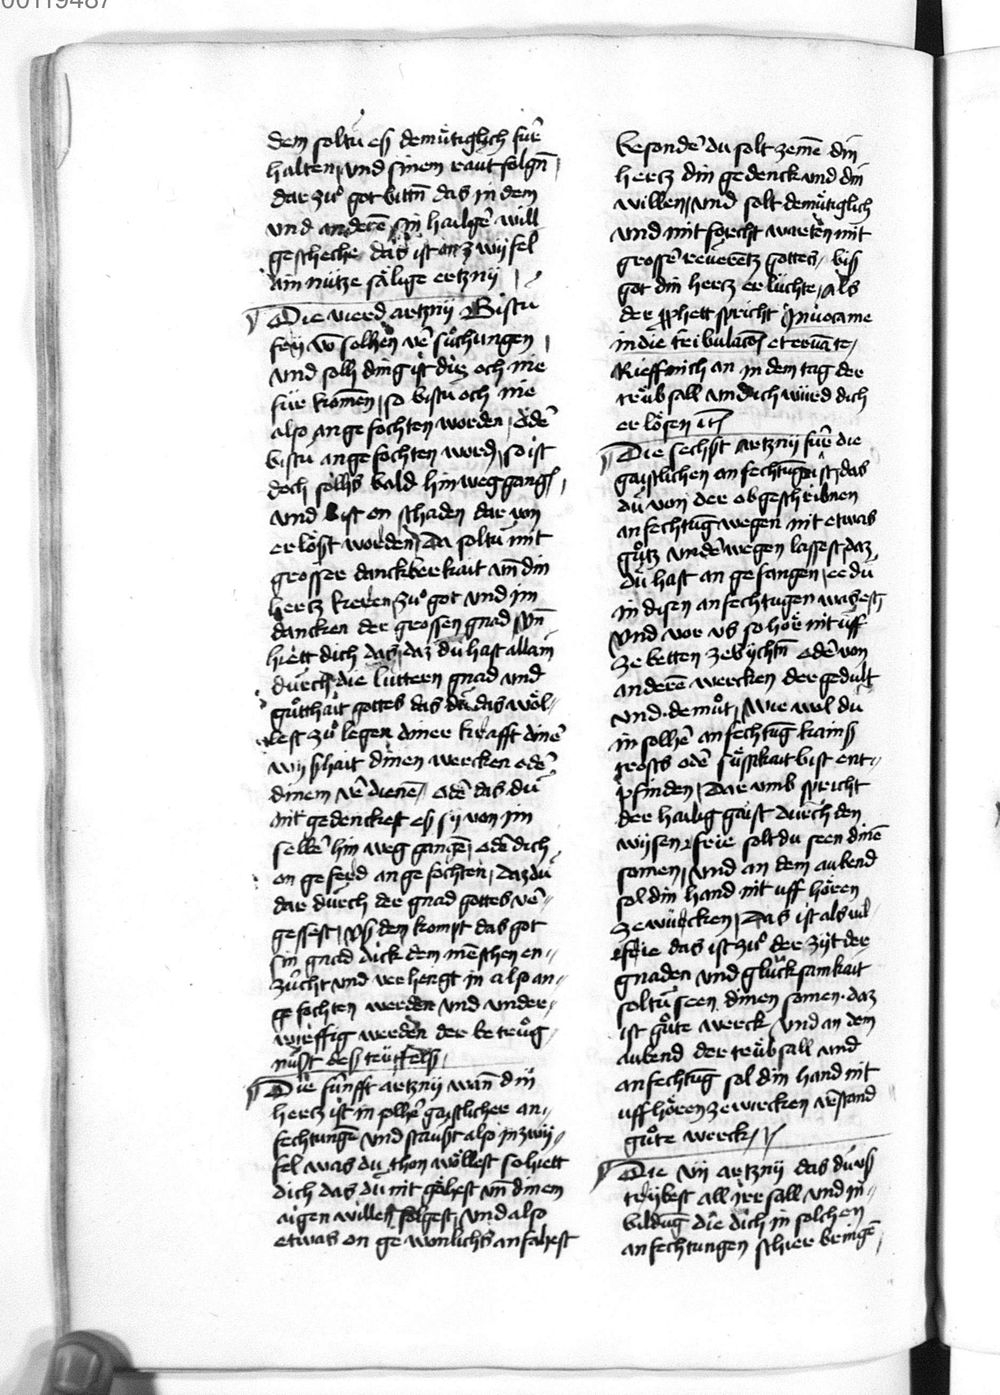 00119487
dem soltu es demütiglich für
halten und sinem raut folgn
dar zuo got bittn das in dem
und anderē sin hailgē will
geschehe das ist on zwyfel
ain nütze sälige ertzny
Die vierd artzny Bistu
fry vō solhen vēsuochungen
und sollh ding ist dir och nie
für komen, so bistu och nie
also angefochten worden, odē
bistu angefochten wordē, so ist
doch sollhs bald hinweg gangē,
und bist on schaden dar von
erlöst worden, Da soltu mit
grosser danckberkait vn̄ din
hertz kerē zuo got und im
dancken der grossen gnad vn̄
hiett dich das, daz du hast allain
durch die luttern gnad und
guotthait gottes das du das wöl-
lest zuo legen diner krafft dinē
wyshait dinen wercken odē
dinem vēdienē, odē das du
nit gedenckest es sy von im
selbē hin weg gangē, odē dich
on geferd angefochten, daz du
dar durch der gnad gottes vē-
gessest, Us dem kompt das got
sin gnad dick dem mēschen en-
zücht und verhengt in also an-
gefochten werden und under-
wirffig werden der betrüg-
nust des tüffels,
Die fünfft artzny wan̄ din
hertz ist in sollhē gaistlicher an-
fechtungē und staust also in zwy-
fel was du thon wöllest so hiett
dich das du nit gähest vn̄ dinem
aigen willen folgest, und also
etwas on gewonlichs anfahest
besondē du solt zemē din
hertz din gedenck und din
willen, und solt demütiglich
und mit forcht warten mit
grossē reverentz gottes, bis
got din hertz erlüchte, Als
der prophett spricht Invocame
in die tribulacōis et eruā te,
Rieff mich an in dem tag der
trübsall und ich würd dich
erlösen
Die sechst artzny für die
gaistlichen anfechtūg ist, das
du von der obgeschribnen
anfechtūg wegen nit etwas
guotz underwegen lassest, daz
du hast angefangen, ee du
in disen anfechtūgen warest
Und vor us so hör nit uff
ze betten ze bychtn̄ odē von
anderē wercken der gedult
und demuot, Wie wol du
in sollhē anfechtūg kains
trosts odē süssikait bist ent-
pfinden, Dar umb spricht
der hailig gaist durch den
wysen, frie solt du seen dinē
somen, und an dem aubend
sol din hand nit uff hören
ze würcken, Das ist als vil
frie das ist zuo der zyt der
gnaden und glücksamkait
soltu seen dinen somen, daz
ist guote werck, und an dem
aubend der trübsall und
anfechtūg sol din hand nit
uff hören ze wircken vēstand
guote werck,
Die vij artzny das du us
trybest all irrsall und in-
bildūg die dich in solchen
anfechtungen schier bringē,